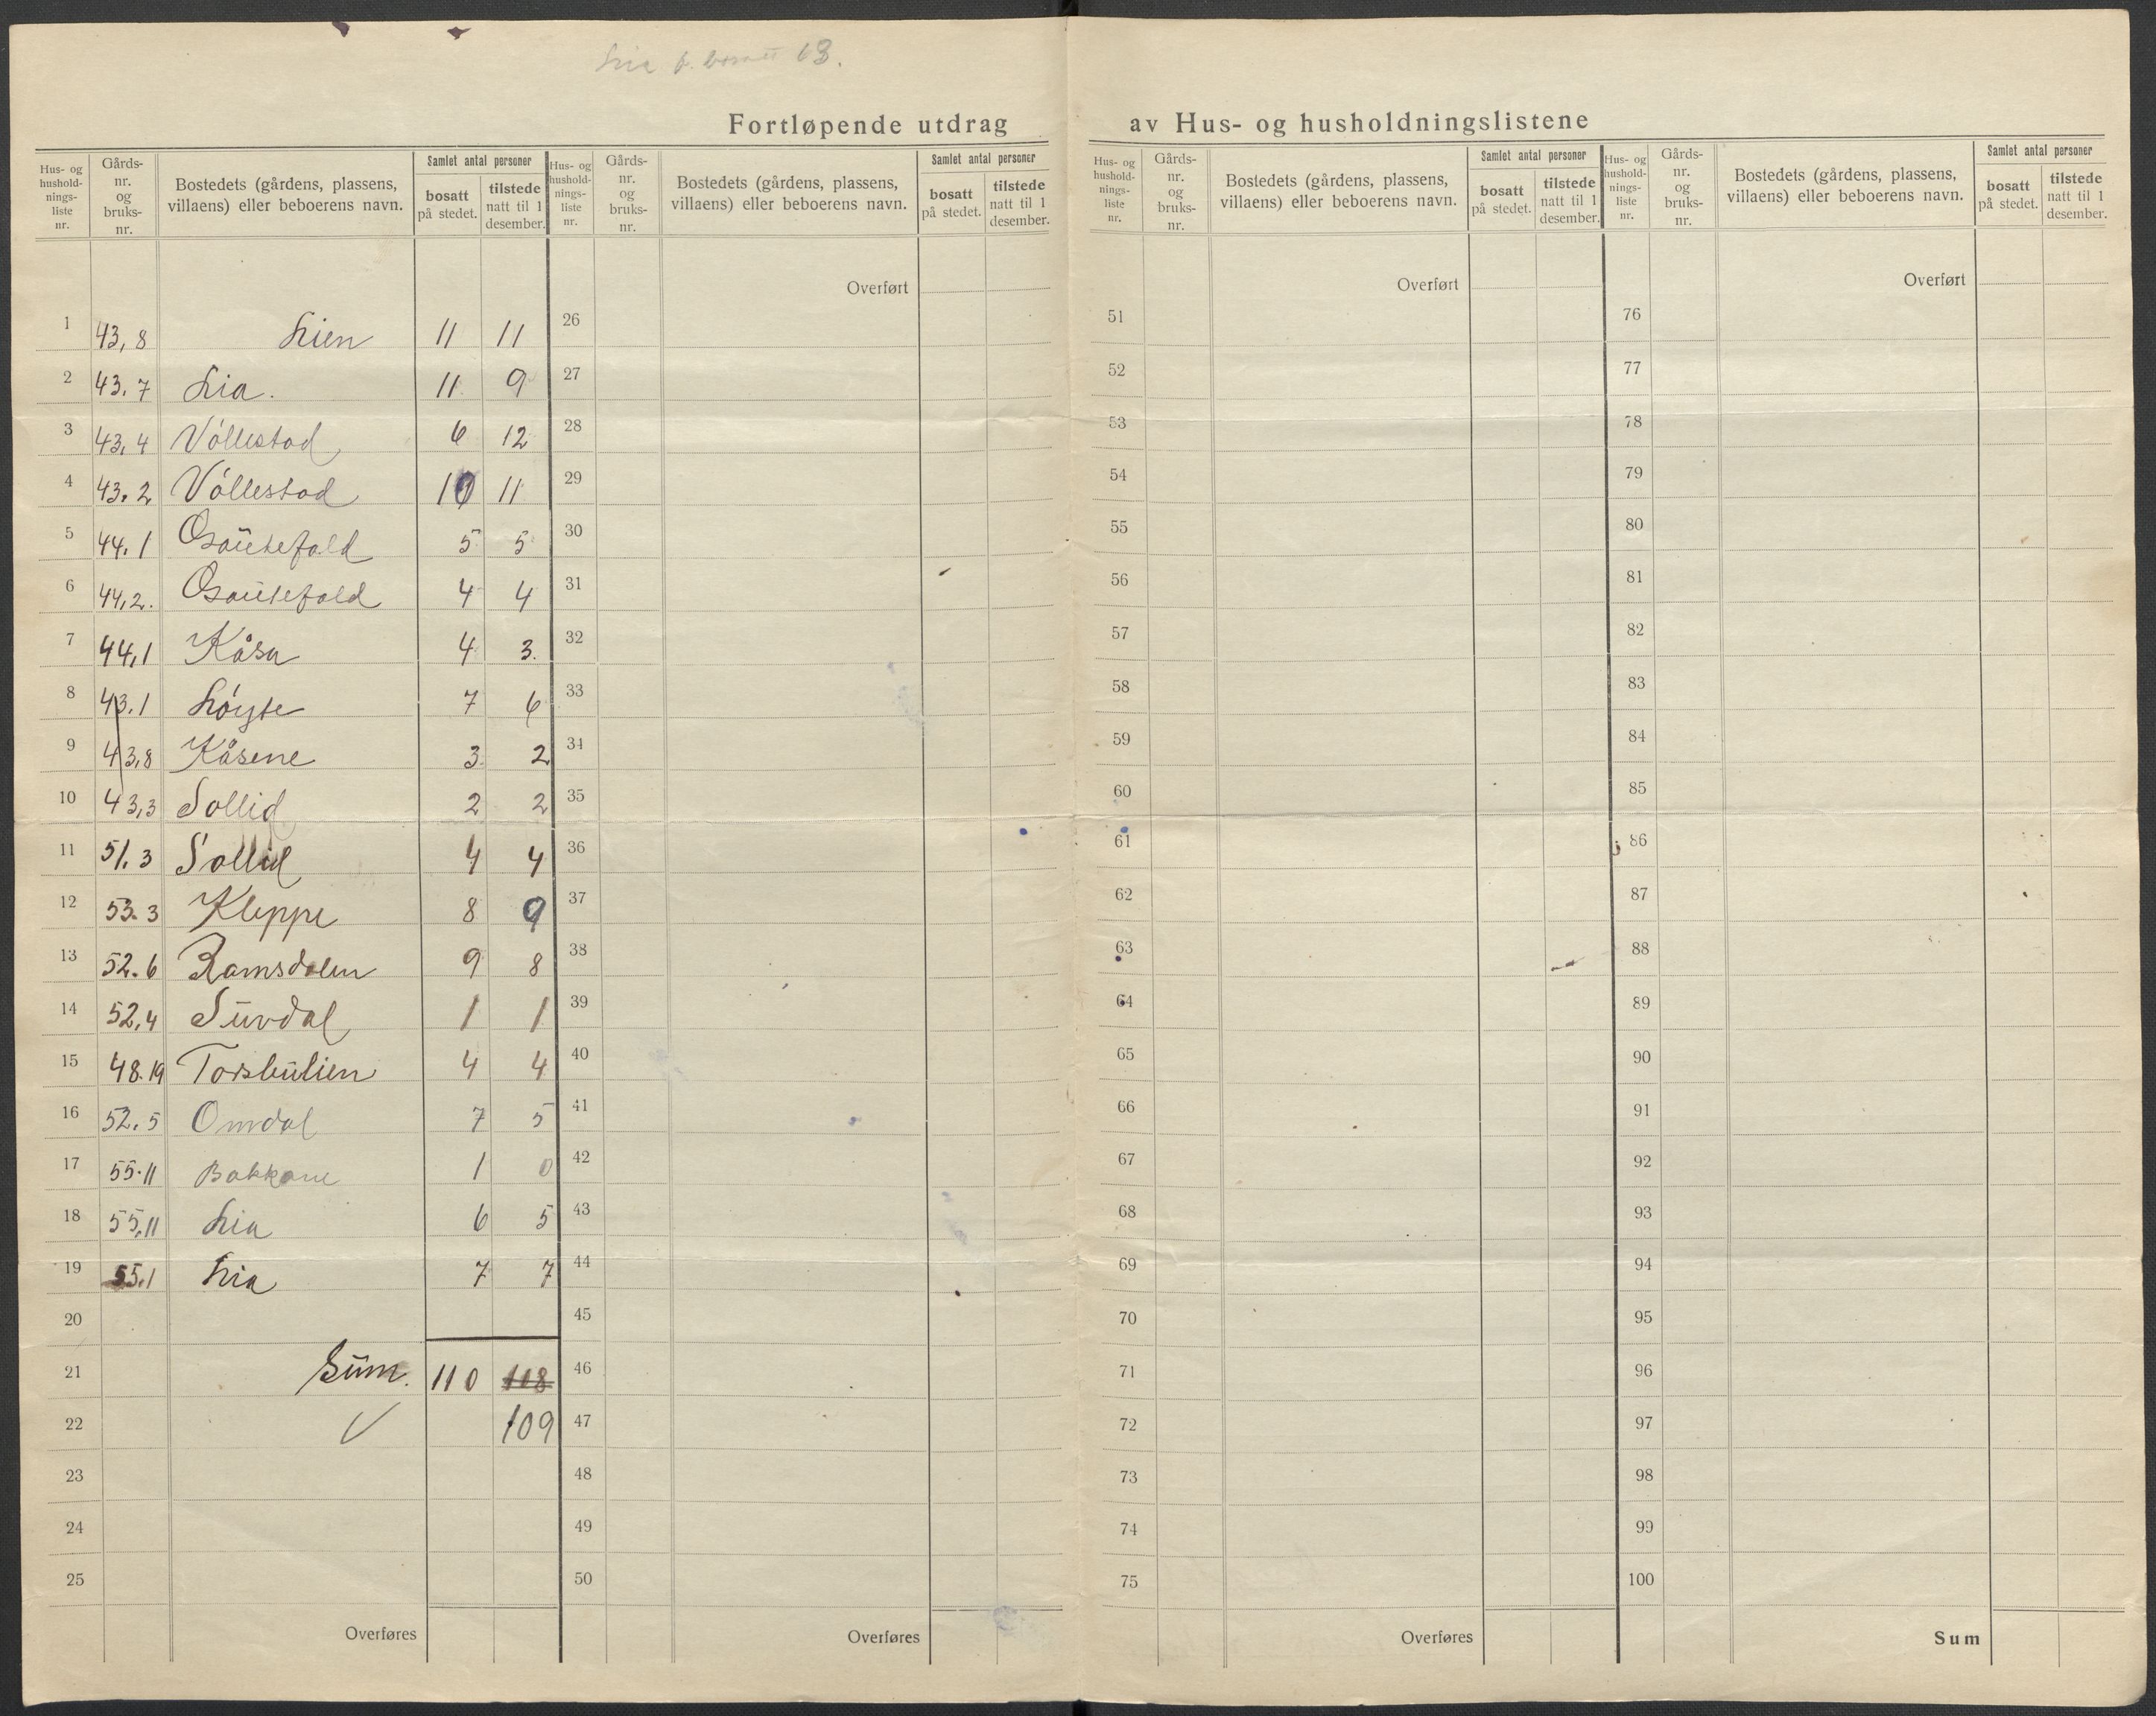 63.
Fortløpende utdrag av Hus- og husholdningslistene
Hus- og hushold- nings- liste nr. Gårds- nr. og bruks- nr. Bostedets (gårdens, plassens, villaens) eller beboerens navn. Samlet antal personer bosatt på stedet. tilstede natt til 1 desember.
Hus- og hushold- nings- liste nr. Gårds- nr. og bruks- nr. Bostedets (gårdens, plassens, villaens) eller beboerens navn. Samlet antal personer bosatt på stedet. tilstede natt til 1 desember.
Hus- og hushold- nings- liste nr. Gårds- nr. og bruks- nr. Bostedets (gårdens, plassens, villaens) eller beboerens navn. Samlet antal personer bosatt på stedet. tilstede natt til 1 desember.
Hus- og hushold- nings- liste nr. Gårds- nr. og bruks- nr. Bostedets (gårdens, plassens, villaens) eller beboerens navn. Samlet antal personer bosatt på stedet. tilstede natt til 1 desember.
Overført Overført Overført
1 43,8 Lien 11 11 26 51 76
2 43.7 Lia. 11 9 27 52 77
3 43,4 Vóllestad 6 12 28 53 78
4 43.2 Vóllestad 10 11 29 54 79
5 44.1 5 5 30 55 80
6 44,2. 4 4 31 56 81
7 44,1 Kåsa 4 3. 32 57 82
8 43.1 Lóyte 7 6 33 58 83
9 43,8 Kåsene 3 2 34 59 84
10 43,3 Sollid 2 2 35 60 85
11 51.3 Sollid 4 4 36 61 86
12 53.3 Kleppe 8 9 37 62 87
13 52.6 Ramsdalen 9 8 38 63 88
14 52,4 Suvdal 1 1 39 64 89
15 48.19 Torsbulien 4 4 40 65 90
16 52.5 Omdal 7 5 41 66 91
17 55.11 Bakkane 1 0 42 67 92
18 55,11 Lia 6 5 43 68 93
19 55.1 Lia 7 7 44 69 94
20 45 70 95
21 Sum. 110 108 46 71 96
22 109 47 72 97
23 48 73 98
24 49 74 99
25 50 75 100
Overføres Overføres Overføres Sum